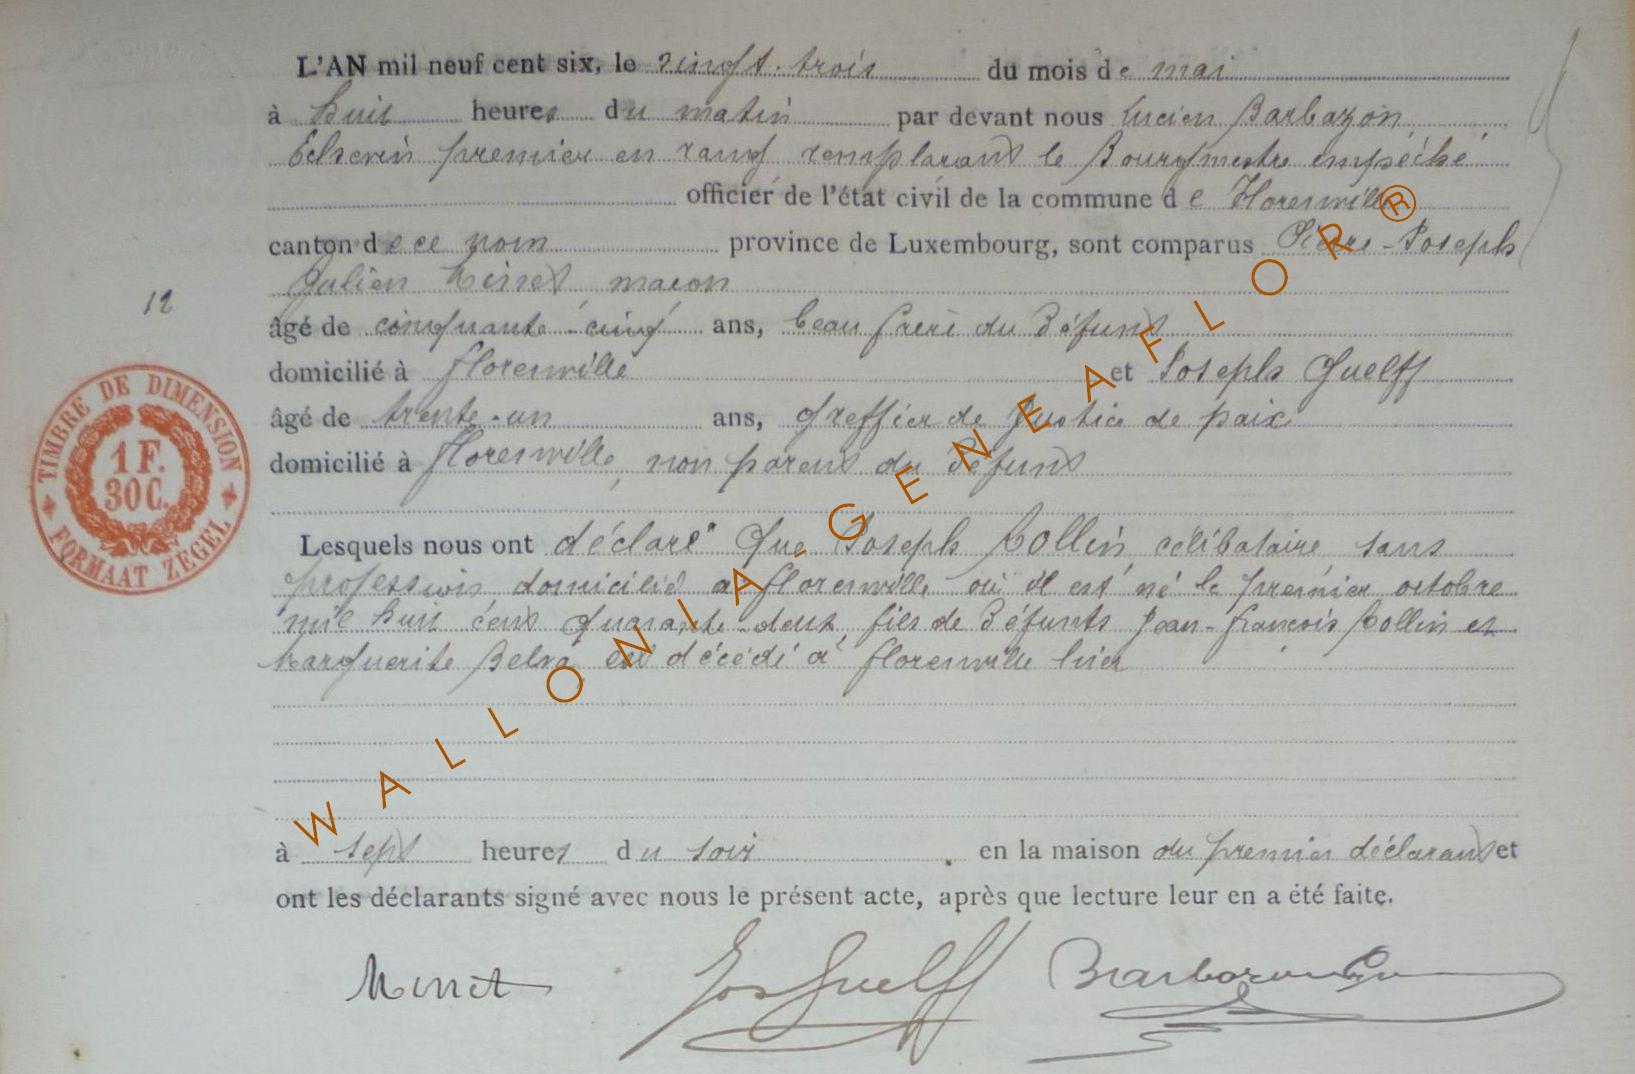 L'AN mil neuf cent six, le vingt-trois du mois de mai
à huit heures du matin par devant nous Lucien Barbazon,
Echevin premier en rang remplaçant le Bourgmestre empêché
officier de l'état civil de la commune de Florenville
canton de ce nom province de Luxembourg, sont comparus Pierre-Joseph
Julien Minet maçon
12
âgé de cinquante-cinq ans, beau frère du défunt
domicilié à Florenville et Joseph Guelff
âgé de trente-un ans, Greffier de Justice de paix
domicilié à Florenville, non parent du défunt
Lesquels nous ont déclaré Que Joseph Collin, célibataire, sans
profession domicilié à Florenville où il est né le premier octobre
mil huit cent quarante-deux, fils de défunts Jean-François Collin et
Marguerite est décédé à Florenville hier
à sept heures du soir en la maison du premier déclarant et
ont les déclarants signé avec nous le présent acte, après que lecture leur en a été faite.
Minet Jos Guelff Barbazon
TIMBRE DE DIMENSION
1 F.
30 C.
FORMAAT ZEGEL
WALLONIA-GENEAFLOR®